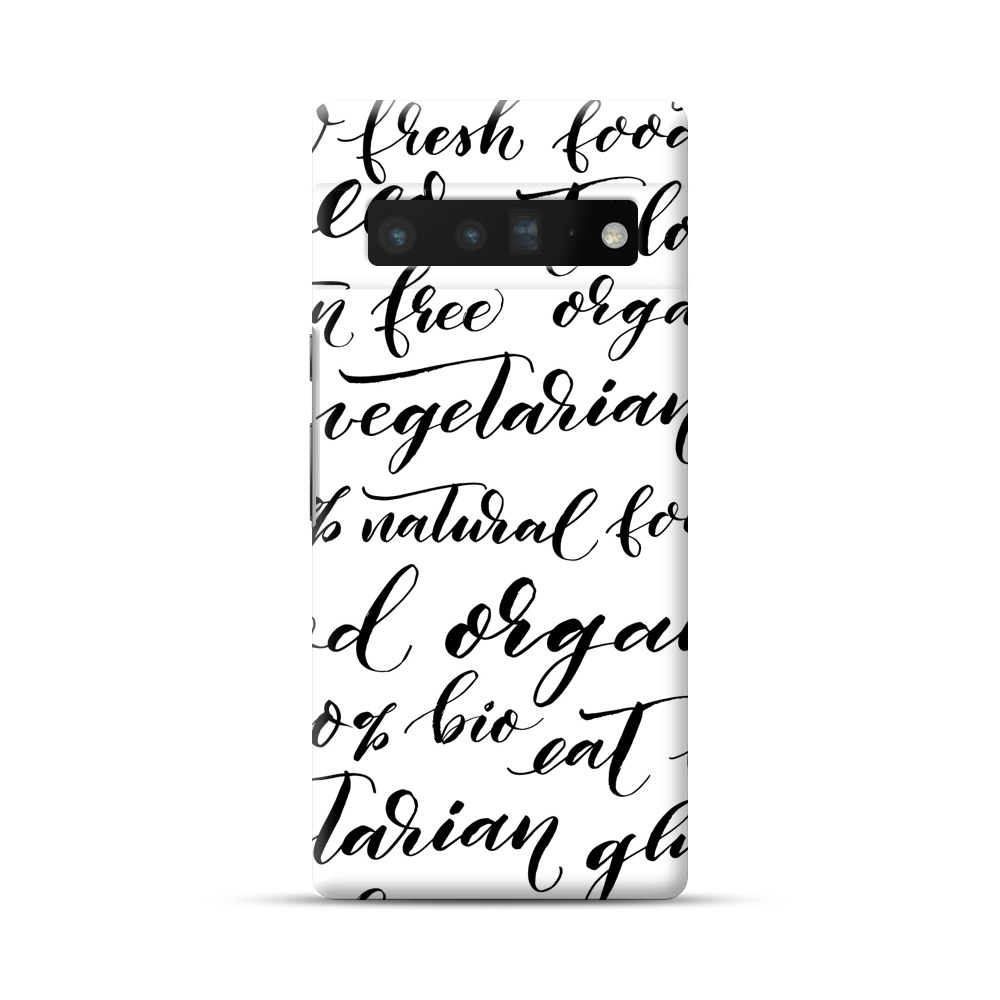 fresh food
free orga
vegetarian
% natural foo
d organ
0% bio eat
tarian glu